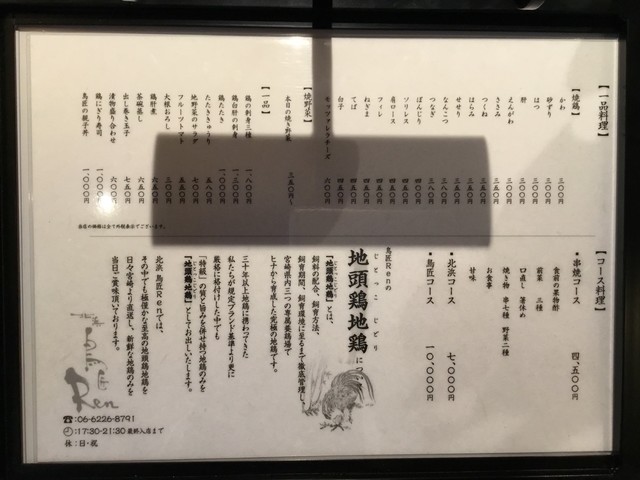 【一品料理】
【焼鶏】
かわ 三〇〇円
砂ずり
はつ
肝
えんがわ
ささみ
つくね
はらみ
せせり
なんこつ
つなぎ 三八〇円
ぼんじり 四〇〇円
ソリレス
肩口ース
フィレ 四五〇円
ねぎま 四五〇円
てば 四五〇円
白子 四五〇円
モッツァレラチーズ 六〇〇円
【焼野菜】
本日の焼き野菜 三五〇円〜
【一品】
鶏の刺身三種 一、八〇〇円
鶏白肝の刺身 一、三〇〇円
鶏たたき 一、〇〇〇円
たたききゅうり 五八〇円
地野菜のサラダ 七〇〇円
フルーツトマト
大根おろし
鶏肝煮 五五〇円
茶碗蒸し 六五〇円
出し巻き玉子 七五〇円
漬物盛り合わせ 六五〇円
鶏にぎり寿司 一、〇〇〇円
鳥匠の親子丼 一、〇〇〇円
当店の価格は全て外税表示でございます。
【コース料理】
・串焼コース 四、五〇〇円
食前の果物酢
前菜 三種
口直し 箸休め
焼き物 串七種 野菜二種
お食事
甘味
・北浜コース 七、〇〇〇円
・鳥匠コース 一〇、〇〇〇円
鳥匠Renの
地頭鶏地鶏に
じとっこ じどり
「地頭鶏地鶏」とは、
飼料の配合、飼育方法、
飼育期間、飼育環境に至るまで徹底管理し、
宮崎県内三つの専属養鶏場で
ヒナから育成した究極の地鶏です。
三十年以上地鶏に携わってきた
私たちが規定ブランド基準より更に
厳格に格付けした中でも
「特級」の質と旨みを併せ持つ地鶏のみを
「地頭鶏地鶏」としてお出しいたします。
北浜 鳥匠Renでは、
その中でも極僅かな至高の地頭鶏地鶏を
日々宮崎より直送し、新鮮な地鶏のみを
当日ご賞味頂いております。
鳥匠
Ren
☎:06-6226-8791
:17:30-21:30最終入店まで
休:日・祝